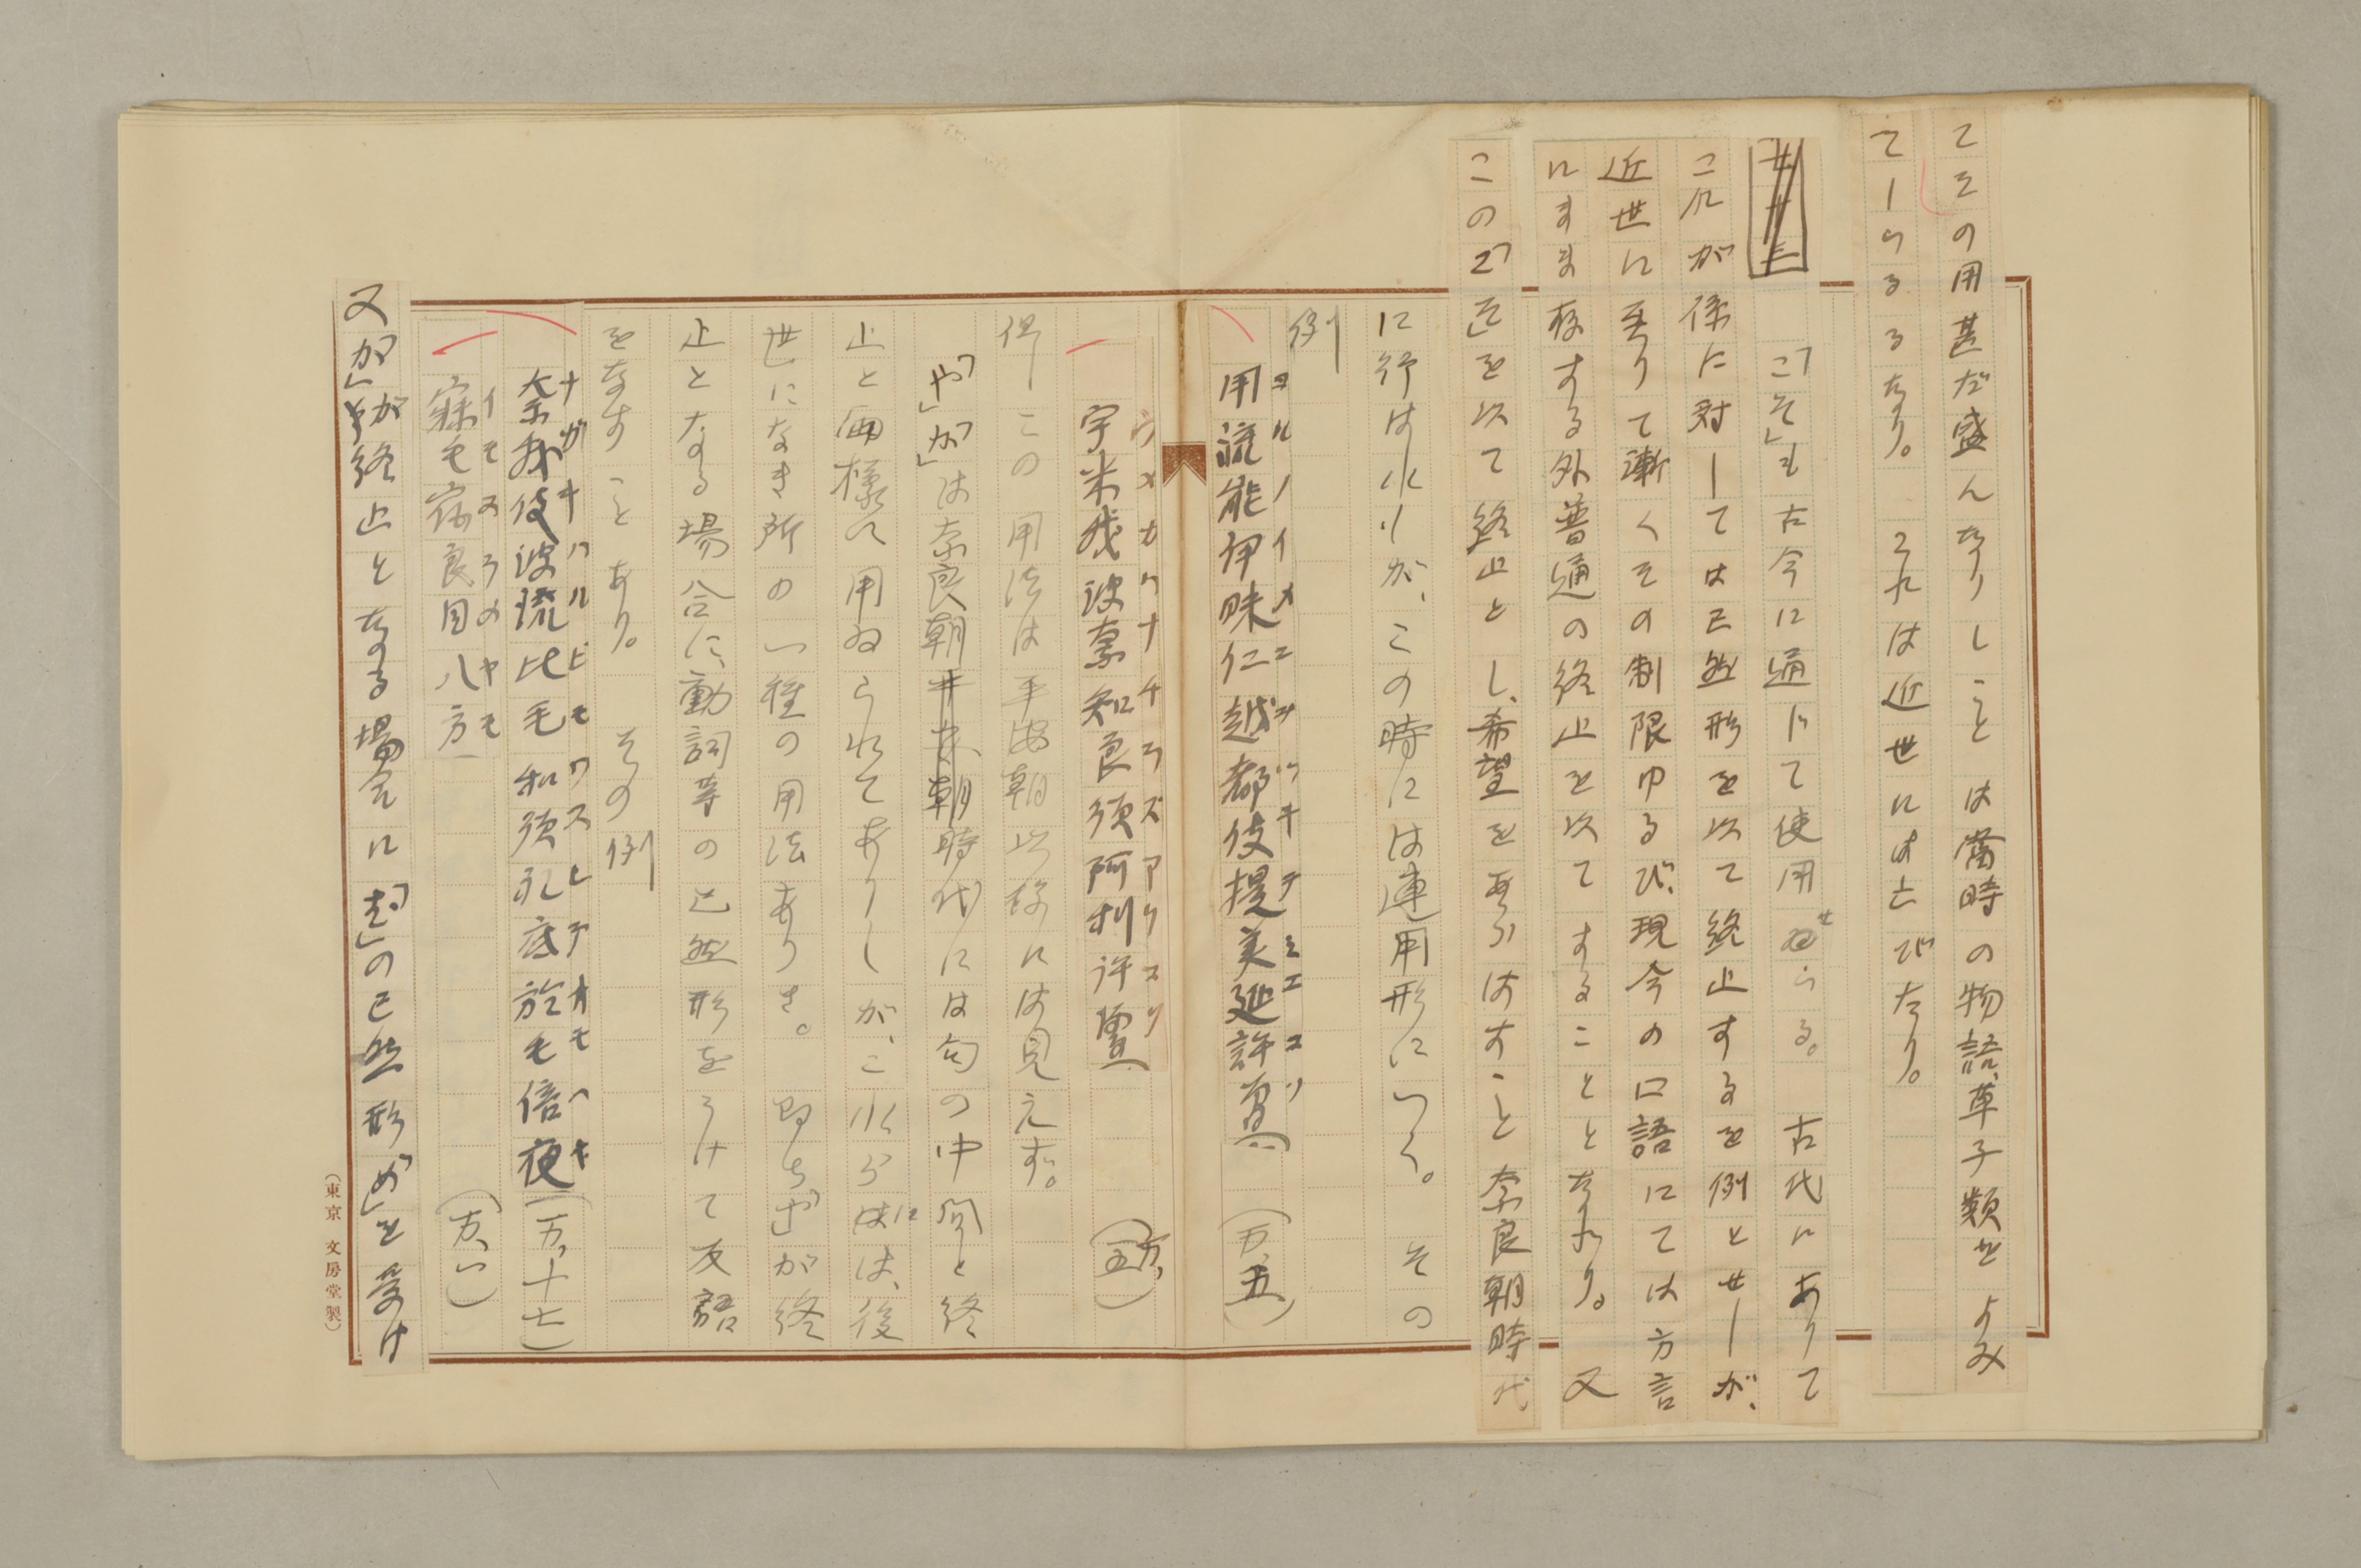 てその用甚だ盛んなりしことは當時の物語、草子類をよみ
てしらるるなり。これは近世にはさびたり。
「こそ」も古今に通じて使用せらる。古代にありて
これが係に対しては已然形を以て終止するを例とせしが、
近世に至りて漸くその制限ゆるび、現今の口語にては方言
にまま存する外普通の終止を以てすることとなれり。又
この「こそ」を以て終止とし、希望をあらはすこと奈良朝時代
に行はれしが、この時には連用形につく。その
例
用流能伊昧仁越都伎提美延許曽 (万、五)
ヨルノイメニヲツキテミエコソ
宇米我波奈知良須阿利許曽 (万、五)
ウメカハナチラズアリコソ
但しこの用法は平安朝以後には見えず。
「や」「か」は奈良朝時代には句の中間と終
止と両様に用ゐられてありしが、これらには、後
世になき所の一種の用法ありき。即ち「ぞ」が終
止となる場合に、動詞等の已然形をうけて反語
をなすことあり。その例
奈我伎波流比毛和須礼底於毛倍夜 (万、十七)
ナガキハルビモワスレテオモヘヤ
寐毛宿良目八方 (万、一)
イモヌラメヤモ
又「か」が終止となる場合に「む」の已然形「め」を受け
(東京 文房堂製)